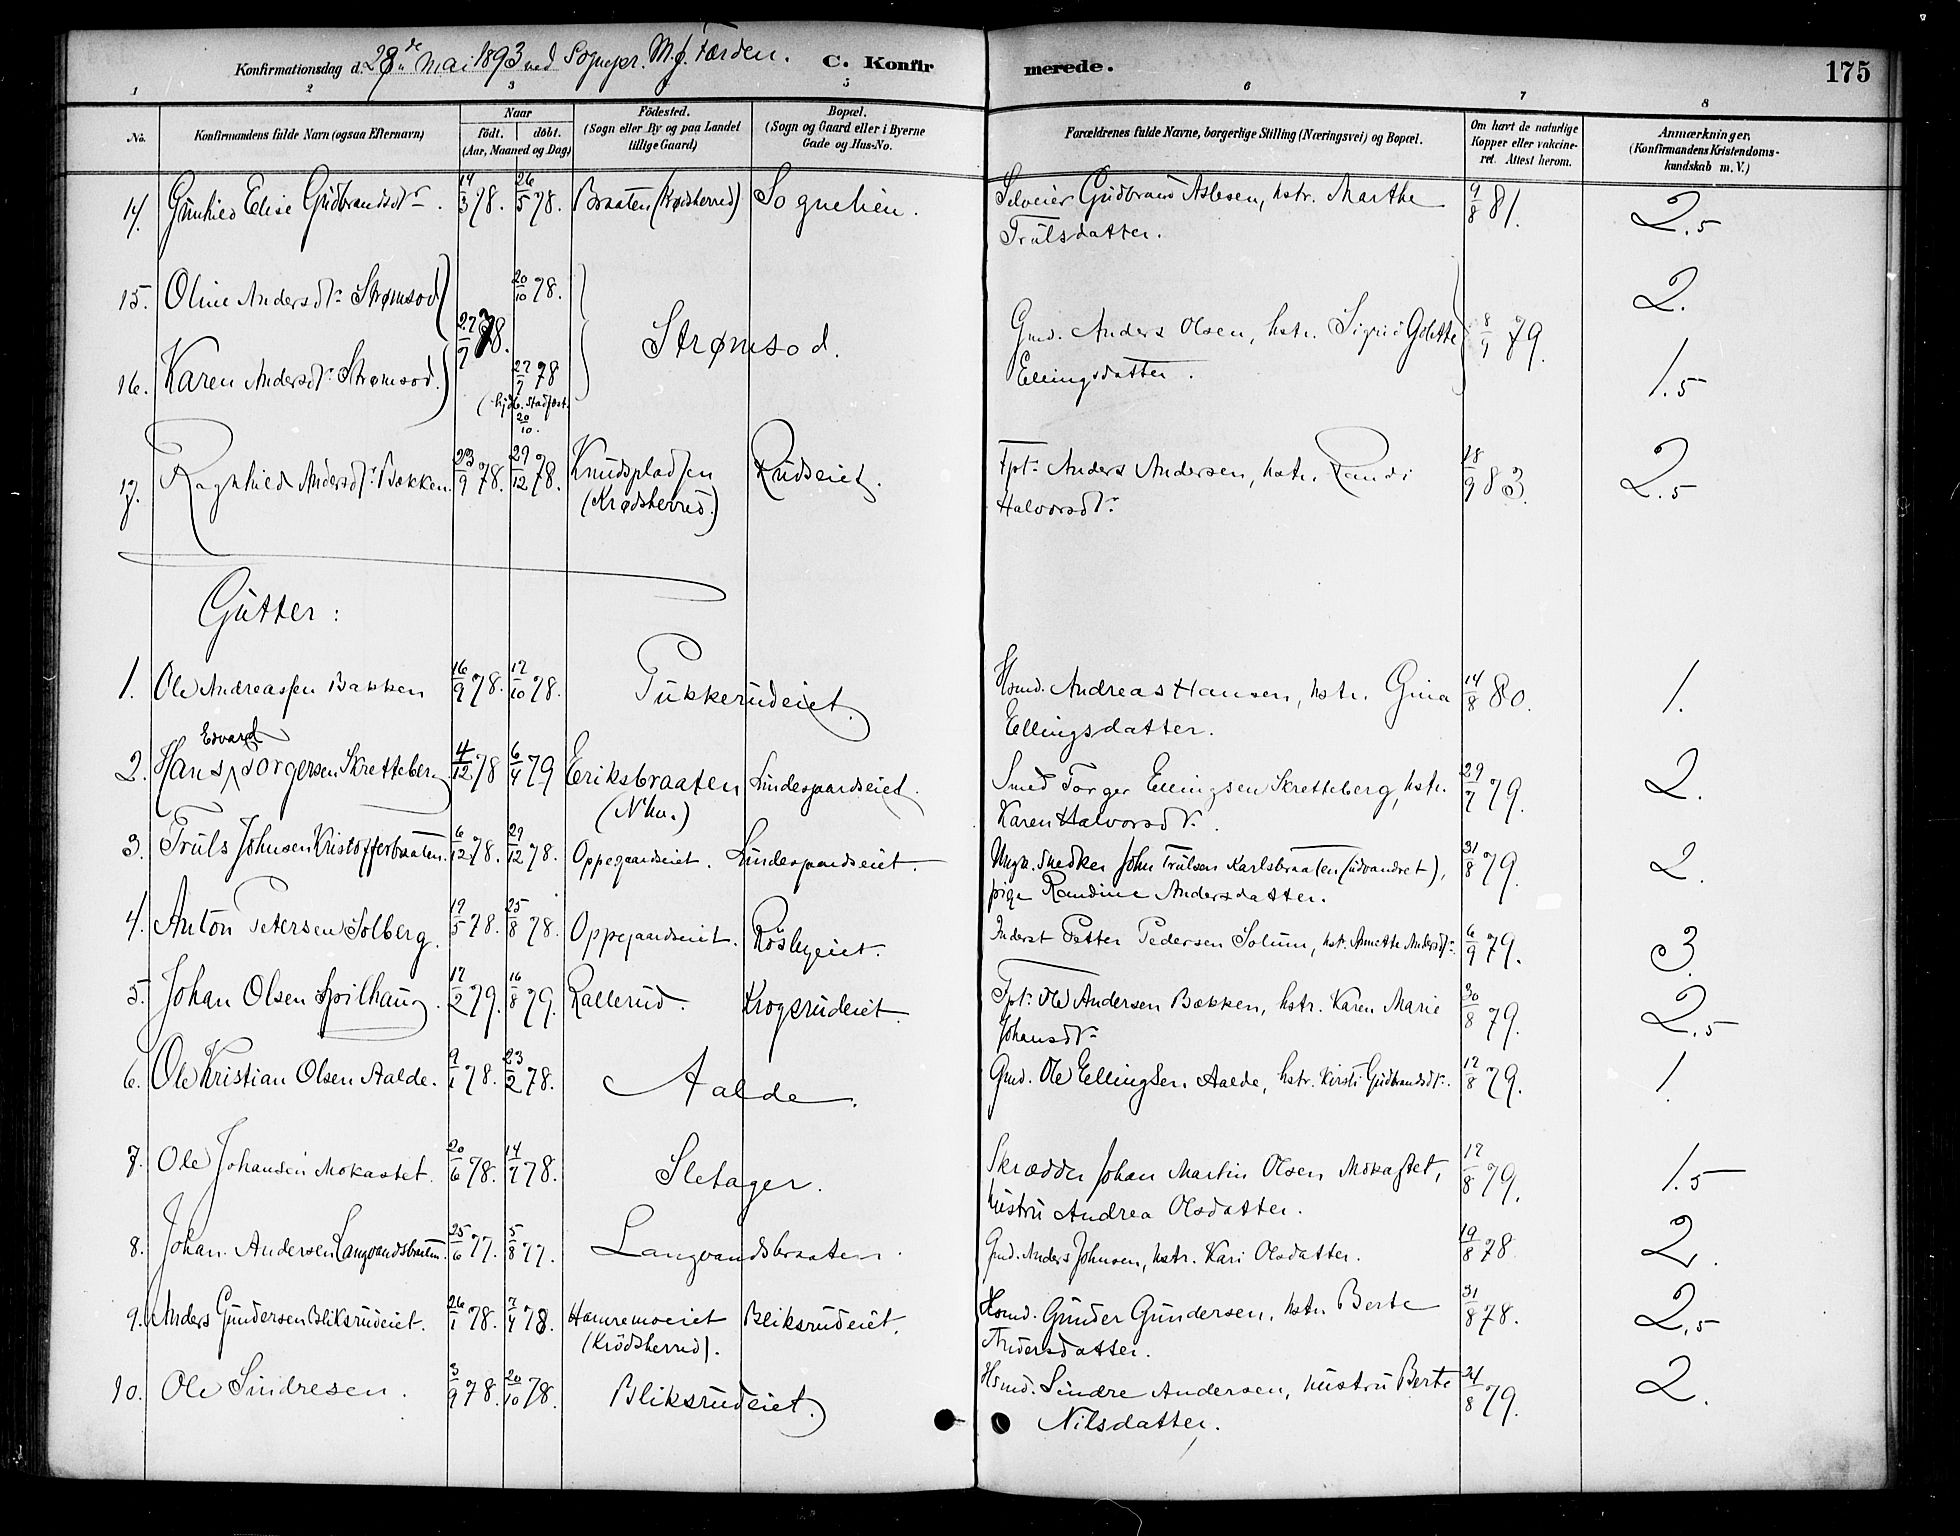 Konfirmationsdag d. 28de Mai 1893 ved Sognepr. M. J. Færden. C. Konfirmerede. 175
1 2 3 4 5 6 7 8
No. Konfirmandens fulde Navn (ogsaa Efternavn) Naar født. døbt. (Aar, Maaned og Dag) Fødested. (Sogn eller By og paa Landet tillige Gaard) Bopæl. (Sogn og Gaard eller i Byerne Gade og Hus-No. Forældrenes fulde Navne, borgerlige Stilling (Næringsvei) og Bopæl. Om havt de naturlige Kopper eller vakcineret. Attest herom. Anmærkninger. (Konfirmandens Kristendomskundskab m. V.)
14. Gunhild Elise Gudbrandsdr. 14/3 78. 26/5 78. Braaten (Krødsherred) Sognelien. Selveier Gudbrand Aslesen, hstr. Marthe 9/8 81. 2.5
Trulsdatter.
15. Oline Andersdr. Strømsod 27/7 78. 20/10 78. Strømsod. Gmd. Anders Olsen, hstr. Sigrid Golette 8/9 79. 2.
16. Karen Andersdr. Strømsod. 27/7 78 Ellingsdatter. 1.5
(hjdb. stadfæst. 20/10.
17. Ragnhild Andersdr. Bakken. 23/9 78. 29/12 78. Knudspladsen Rudseiet. Fpt. Anders Andersen, hstr. Randi 18/9 83. 2.5
(Krødsherred.) Halvorsdr.
Gutter:
1. Ole Andreassen Bakken 16/9 78. 17/10 78. Pukkerudeiet. Hsmd. Andreas Hansen, hstr. Gina 14/8 80. 1.
Ellingsdatter.
Edvard
2. Hans Torgersen Skretteberg 4/12 78 6/4 79 Eriksbraaten Lindegaardseiet. Smed Torger Ellingsen Skretteberg, hstr. 29/7 79. 2.
(N'ho.) Karen Halvorsdr.
3. Truls Johnsen Kristofferbraaten. 6/12 78. 29/12 78. Oppegaardseiet. Lindegaardseiet. Ungk. Snedker John Trulsen Karlsbraaten (udvandret), 31/8 79. 2.
pige Randine Andersdatter.
4. Anton Petersen Solberg. 19/5 78. 25/8 78. Oppegaardseiet. Røsbyeiet. Inderst Petter Pedersen Solum, hst. Annette Andersdr. 6/9 79. 3.
5. Johan Olsen Spilhaug. 17/2 79. 16/8 79. Rallerud. Krogsrudeiet. Fpt. Ole Andersen Bakken, hstr. Karen Marie 30/8 79. 2.5
Johansdr.
6. Ole Kristian Olsen Aalde. 9/1 78. 23/2 78. Aalde. Gmd. Ole Ellingsen Aalde, hstr. Kirsti Gudbrandsdr. 17/8 79. 1.
7. Ole Johansen Mokastet. 20/6 78. 14/7 78. Sletager. Skrædder Johan Martin Olsen Mokastet, 17/8 79. 1.5
hustru Andrea Olsdatter.
8. Johan Andersen Langvandsbraaten. 25/6 77. 5/8 77. Langvandsbraaten. Gmd. Anders Johnsen, hstr. Kari Olsdatter. 19/8 78. 2.
9. Anders Gundersen Bliksrudeiet. 26/1 78. 7/4 78. Hamremoeiet Bliksrudeiet. Hsmd. Gunder Gundersen, hstr. Berte 31/8 78. 2.5
(Krødsherred). Andersdatter.
10. Ole Sindresen. 3/9 78. 20/10 78. Bliksrudeiet. Hsmd. Sindre Andersen, hustru Berte 21/8 79. 2.
Nilsdatter.